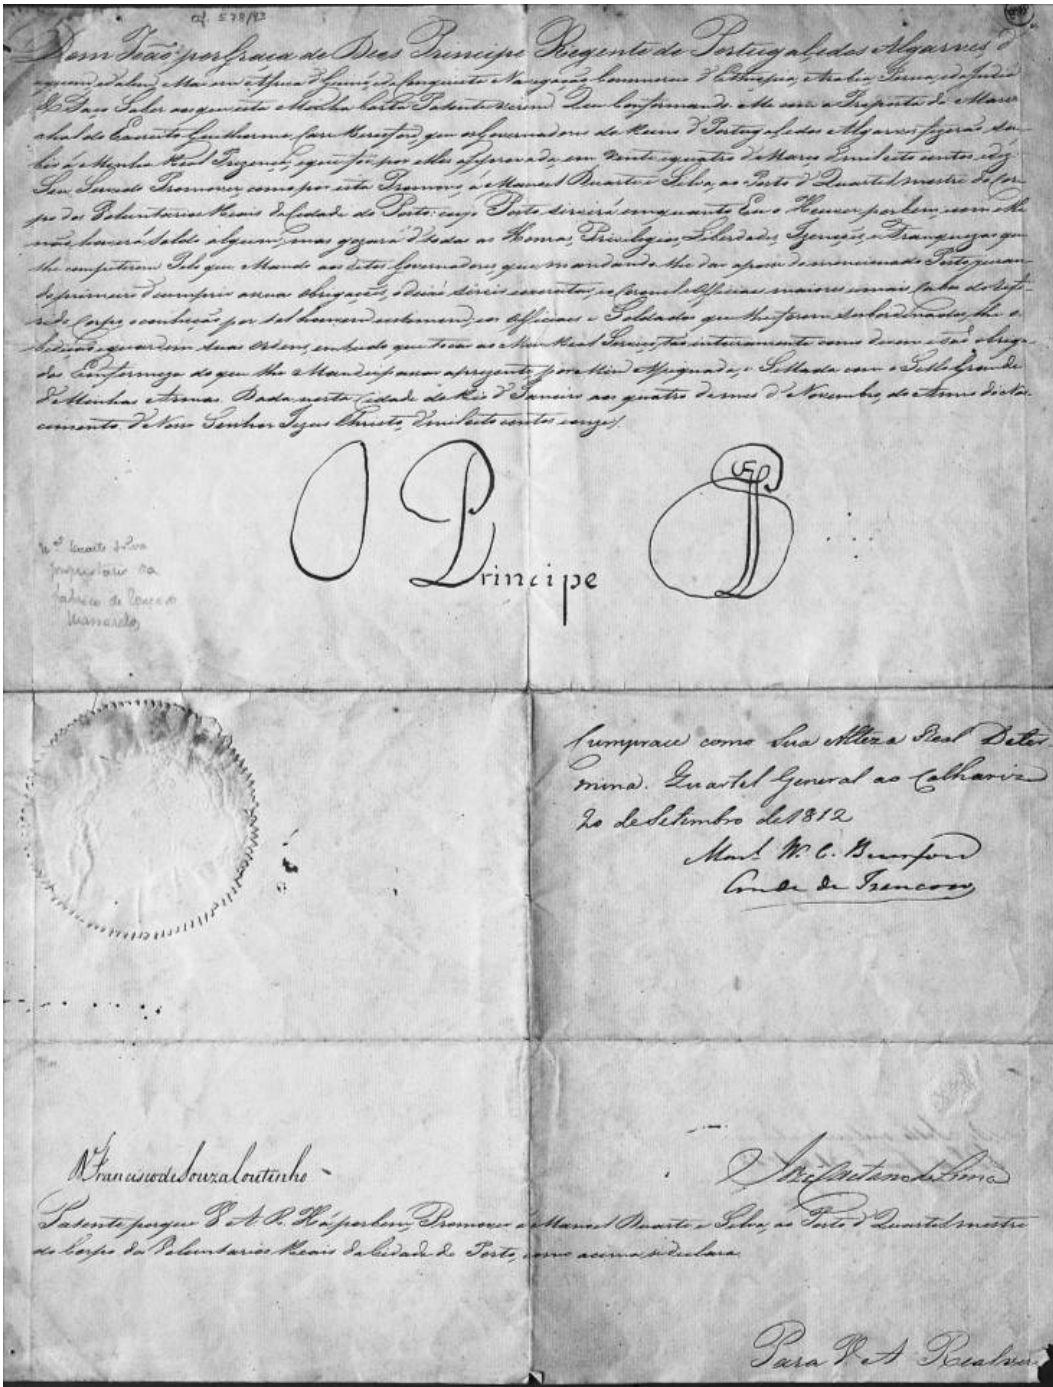 of. 578/93
Dom João por Graça de Deos Principe Regente de Portugal, e dos Algarves, d'
aquem, e dalem, Mar em Africa d'Guiné, e da Conquista Navegação Commercio d'Ethiopia, Arabia Persia, e da India
& Faço Saber aos que esta Minha Carta Patente virem: Que Conformando Me com a Proposta do Mare-
chal do Exercito Guilherme Carr Beresford, que os Governadores do Reino d'Portugal e dos Algarves fizerão su-
bir á Minha Real Prezença, e que foi por elles approvada, em vinte e quatro d'Março d'mil oito centos e dez
Sou Servido Promover, como por esta Promovo, á Manoel Duarte e Silva, ao Posto d'Quartel mestre do Cor-
po dos Voluntarios Reais da Cidade do Porto: cujo Posto servirá emquanto Eu o Houver por bem, com elle
não haverá Soldo algum, mas gozará d'todas as Honras, Privilegios, Liberdades, Izenções, e Franquezas que
lhe competirem Pelo que Mando aos ditos Governadores que mandando-lhe dar a posse do mencionado Posto, juran-
do primeiro d'cumprir as suas obrigações, o deixe servir exercitar, e o Coronel e Officiaes maiores e mais Cabos do refe-
rido Corpo o conheção por tal honrem e estimem, e os Officiaes e Soldados que lhe forem subordinados, lhe o-
bedeção e guardem suas Ordens, em tudo que toca ao Meu Real Serviço, tão inteiramente como devem e são obriga-
dos Em firmeza do que lhe Mandei passar a prezente, por Mim Assignada, e Sellada com o Sello Grande
d'Minhas Armas. Dada nesta Cidade do Rio d'Janeiro aos quatro do mes d'Novembro, do Anno do Nas-
cimento d'Nosso Senhor Jezus Christo, d'mil oito centos e onze.
O Principe
Mel Duarte Silva
proprietário da
fabrica de louça de
Massarelos
Cumprace como Sua Alteza Real Deter
mina. Quartel General ao Calhariz
20 de Setembro de 1812
Marl W. C. Beresford
Conde de Trancoso
D. Francisco de Souza Coutinho
José Caetano de Lima
Patente porque V. A. R. Há por bem, Promover á Manoel Duarte e Silva, ao Posto d'Quartel mestre
do Corpo dos Voluntarios Reais da Cidade do Porto, como acima se declara.
Para V. A. Real ver